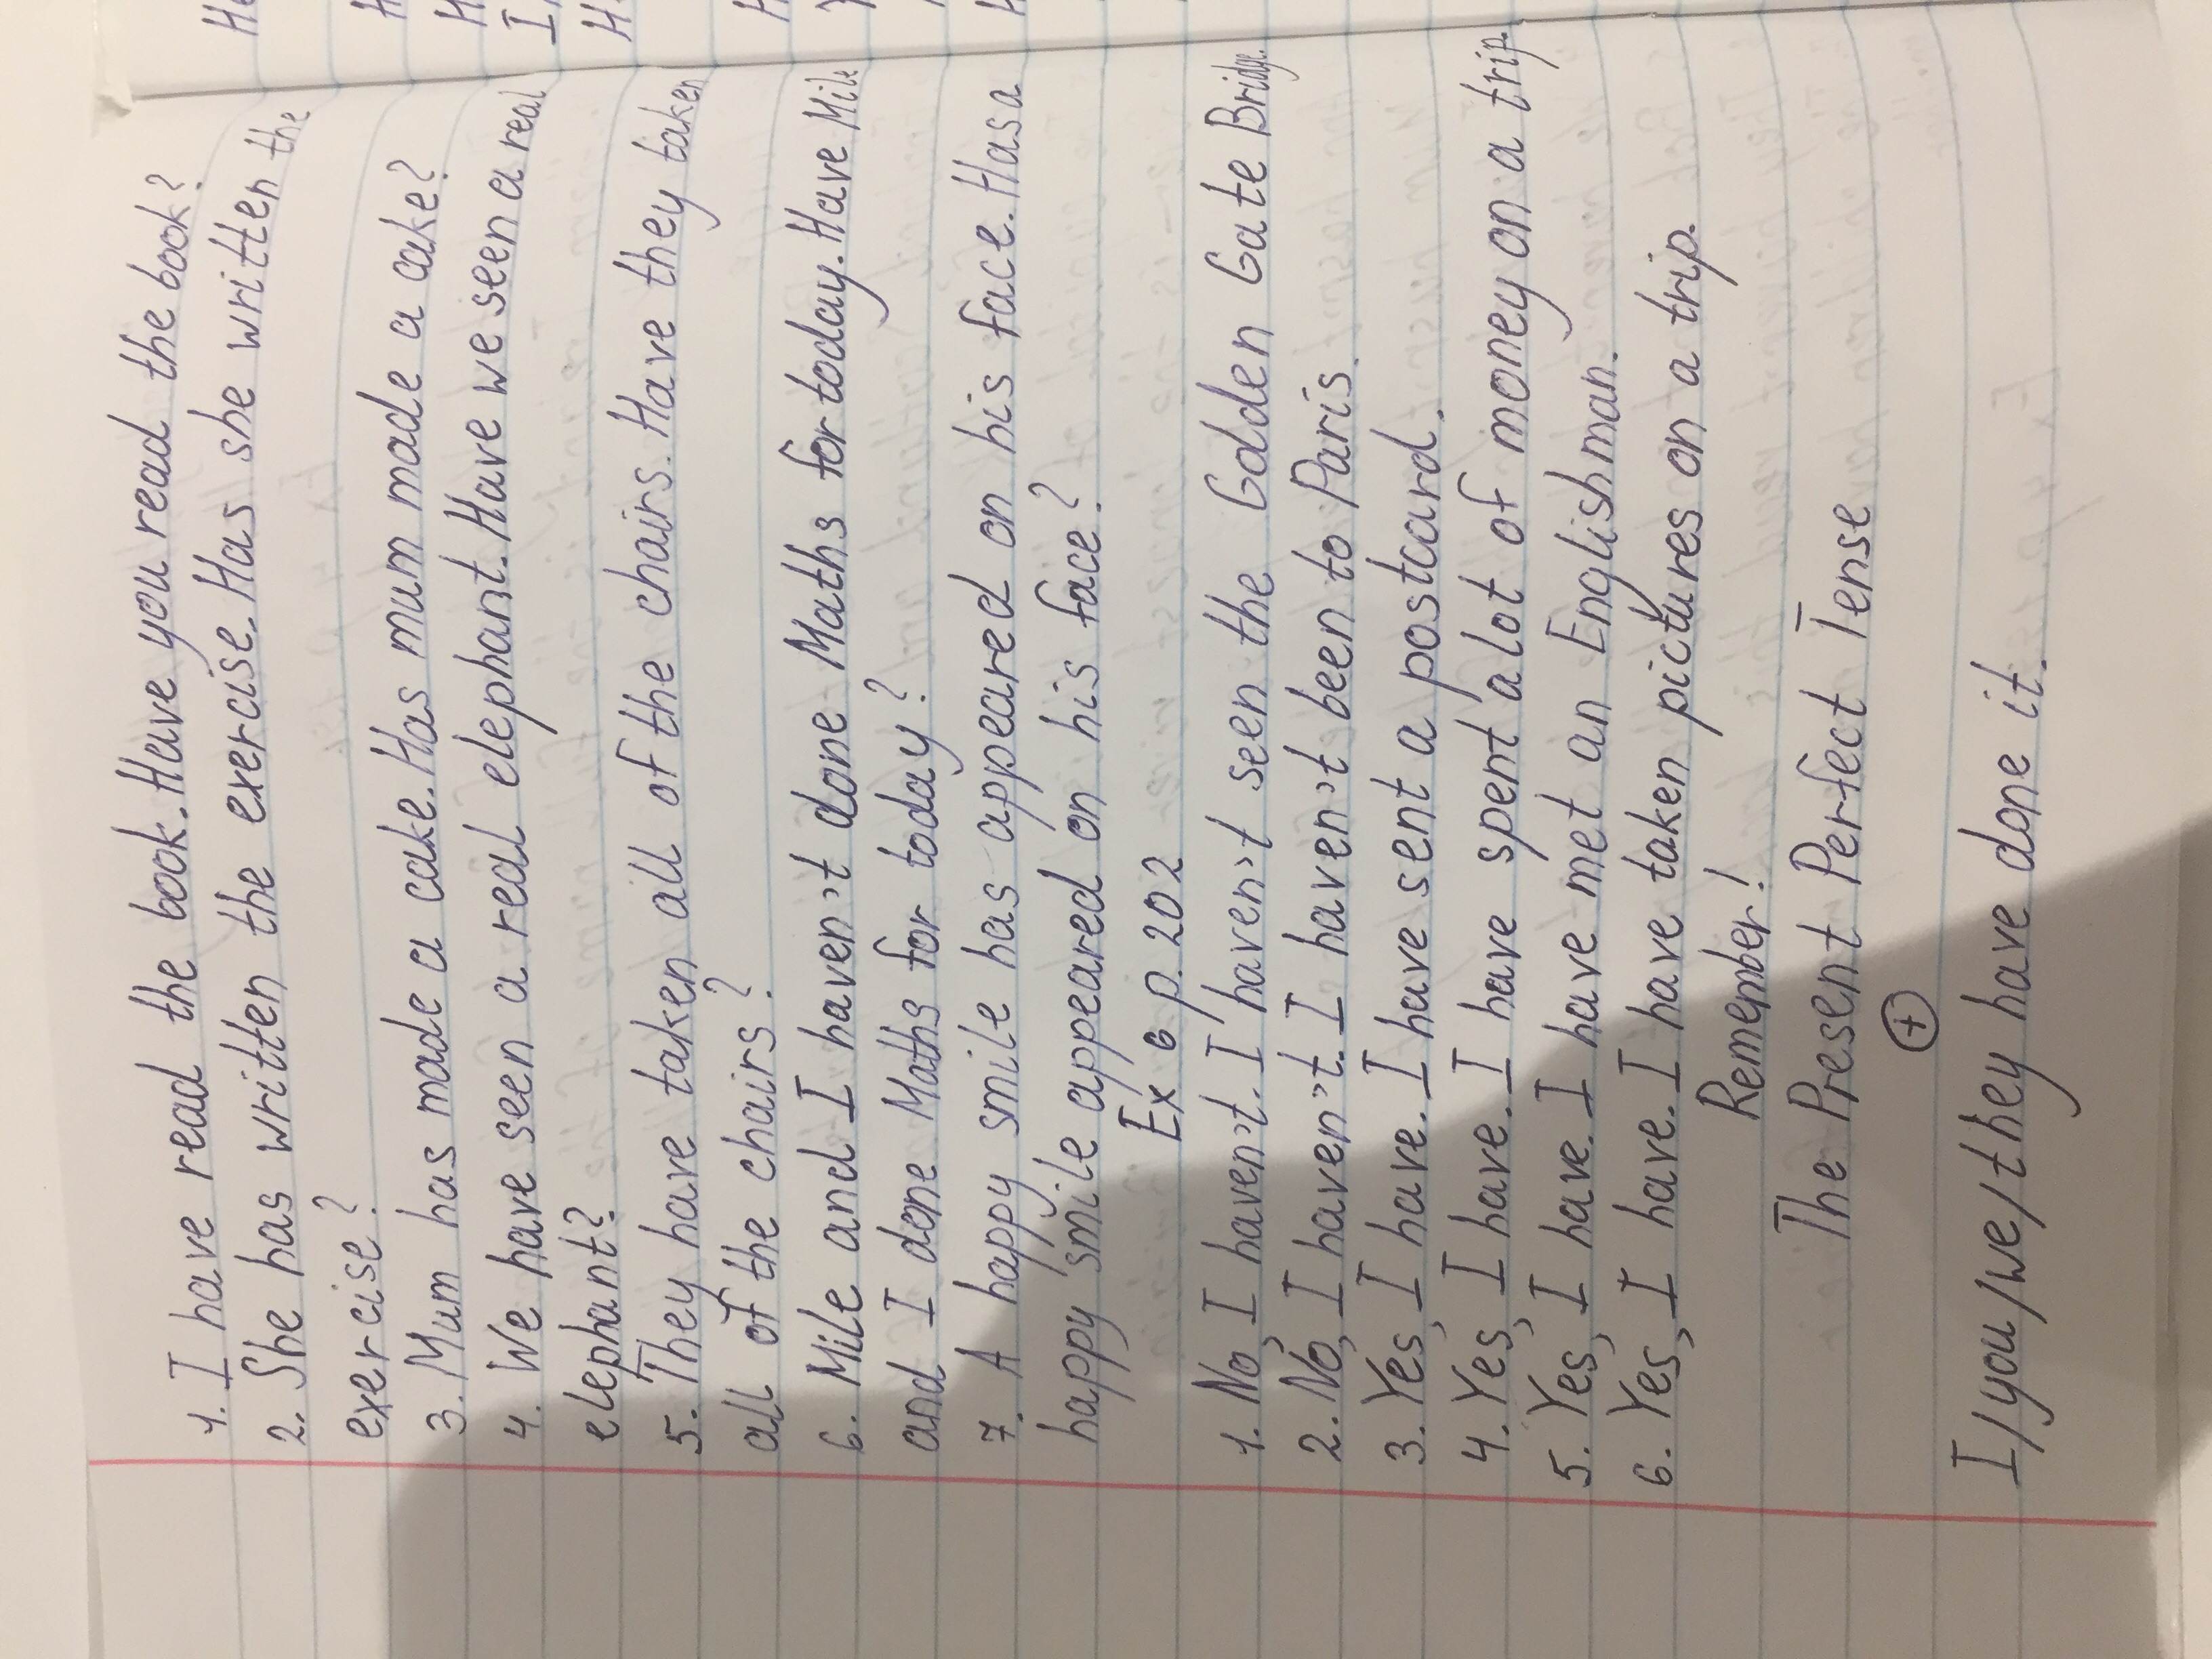 1. I have read the book. Have you read the book?
2. She has written the exercise. Has she written the
exercise?
3. Mum has made a cake. Has mum made a cake?
4. We have seen a real elephant. Have we seen a real
elephant?
5. They have taken all of the chairs. Have they taken
all of the chairs?
6. Mile and I haven't done Maths for today. Have Mile
and I done Maths for today?
7. A happy smile has appeared on his face. Has a
happy smile appeared on his face?
Ex 6 p. 202
1. No, I haven't. I haven't seen the Golden Gate Bridge.
2. No, I haven't. I haven't been to Paris.
3. Yes, I have. I have sent a postcard.
4. Yes, I have. I have spent a lot of money on a trip.
5. Yes, I have. I have met an Englishman.
6. Yes, I have. I have taken pictures on a trip.
Remember!
The Present Perfect Tense
+
I/you/we/they have done it.